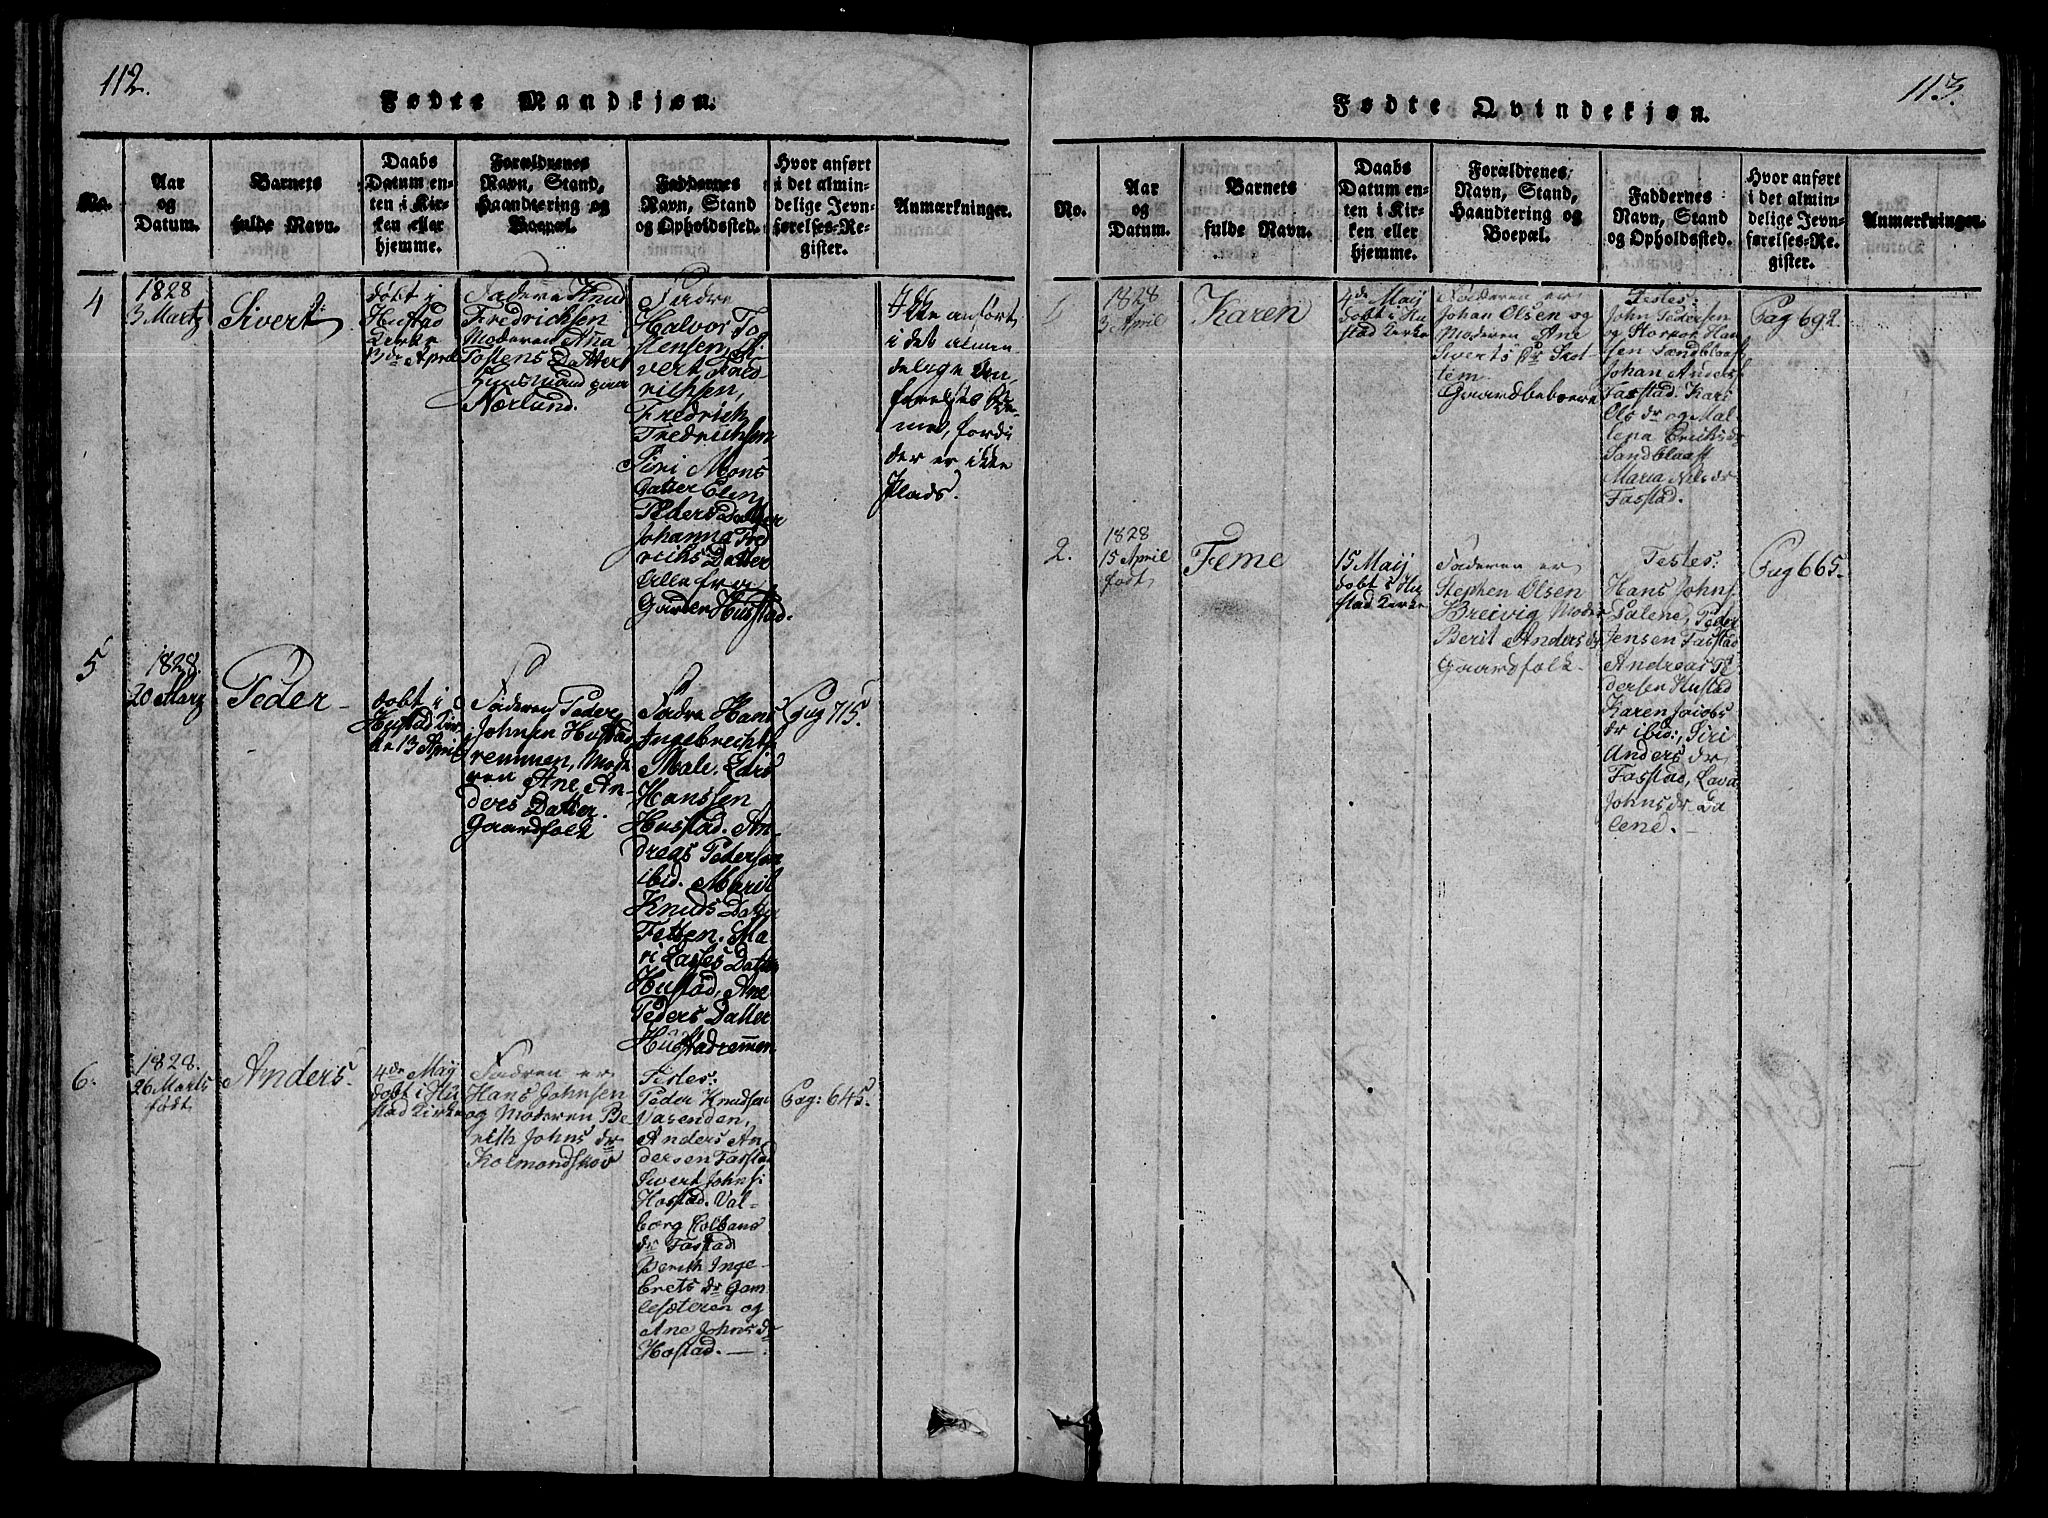 112.
Fødte Mandkjøn.
No.
Aar
og
Datum.
Barnets
fulde Navn.
Daabs
Datum en-
ten i Kir-
ken eller
hjemme.
Forældrenes
Navn, Stand,
Haandtering og
Boepæl.
Faddernes
Navn, Stand
og Opholdssted.
Hvor anført
i det almin-
delige Jevn-
førelses-Re-
gister.
Anmærkninger.
4
1828
3 Martz
Sivert
døbt i
Hustad
Kirke
13de April
Faderen Knud
Fredrichsen
Moderen Ana
Tostens Datter
Huusmand paa
Nørlund.
Fadre
Halvor To
stensen, Si
vert Fred
richsen,
Fredrich
Fredrichsen
Siri Mons
Datter Elen
Peders Datter
Johanna Fred
reichs Datter
Alle fra
Gaarden Hustad.
Ikke anført
i det almin
delige Jevn
førelses Re
fordi
der er ikke
Plads.
5
1828.
20 Martz
Peder
døbt i
Hustad Kir
ke 13 April
Faderen Peder
Johnsen Hustad
remmen, Mode
ren Ane An
ders Datter.
Gaardfolk
Fadre Hans
Ingebrechts
Male. Lars
Hanssen
Hustad. An
dreas Pedersen
ibid. Marit
Knuds Datter
Tetten. Ma
ri Lasses Datter
Hustad, Ane
Peders Datter
Hustadremmen
Pag 715.
6.
1828.
26 Marts
født
Anders.
4de Maij
døbt i Hu
stad Kirke
Fadren er
Hans Johnsen
og Moderen Be
rith Johns dr
Kolmandskov
Testes:
Peder Knudsen
Vasenden,
Anders An
dersen Fastad
Sivert Johns:
Hostad. Val-
borg Kolbens
dr Fastad
Berith Inge
brets dr Gam
lesæteren og
Ane Johns dr
Hostad. —
Pag: 645.
113.
Fødte Qvindekjøn.
No.
Aar
og
Datum.
Barnets
fulde Navn.
Daabs
Datum en-
ten i Kir-
ken eller
hjemme.
Forældrenes
Navn, Stand,
Haandtering og
Boepæl.
Faddernes
Navn, Stand
og Opholdssted.
Hvor anført
i det almin-
delige Jevn-
førelses-Re-
gister.
Anmærkninger.
1
1828
3 April
Karen
4de Maij
døbt i Hu
stad Kirke
Faderen er
Johan Olsen og
Moderen Ane
Siverts Dr Slot
tem
Gaardbeboere
Testes:
John Pedersen
og Han
sen Sandblaast
Johan Anders:
Fastad. Kari
Ols dr og Mal
lena Erichs dr
Sandblaast
Maria Nils dr
Fastad.
Pag 692.
2.
1828
15 April
født
Feme
15 Maij
døbt i Hu
stad Kirke
Faderen er
Stephen Olsen
Breivig Moder
Berit Anders dr
Gaardfolk
Testes:
Hans Johns:
Dalene, Peder
Jensen Fastad
Andreas Pe
dersen Hustad
Karen Jacobs
dr ibid:, Siri
Anders dr
Fastad, Lava
Johns dr Da
lene. —
Pag 665.